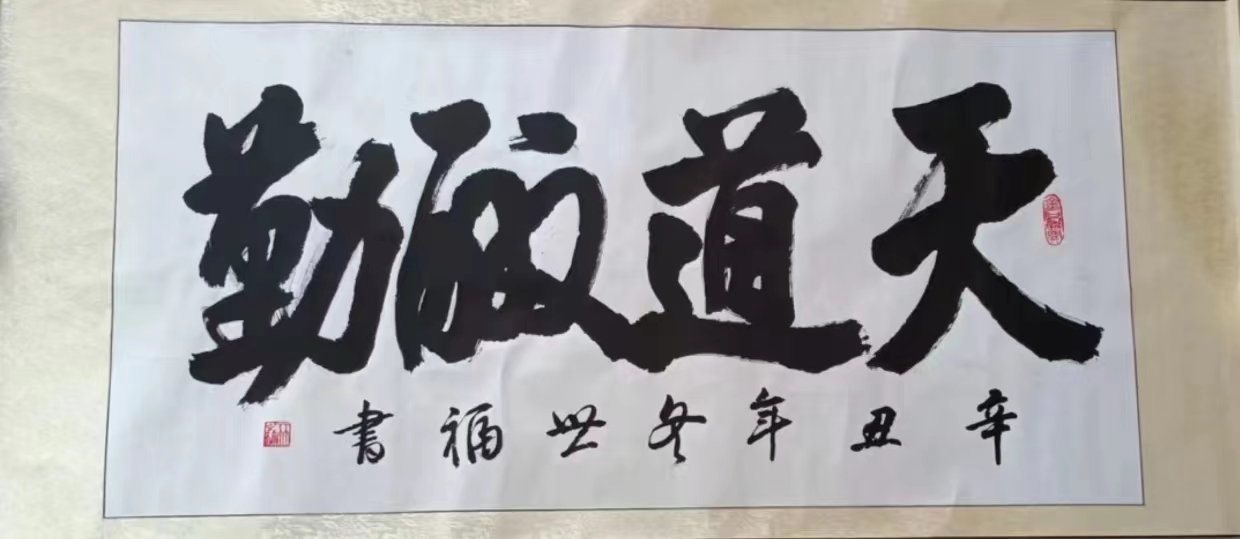 天道酬勤
辛丑年冬世福書